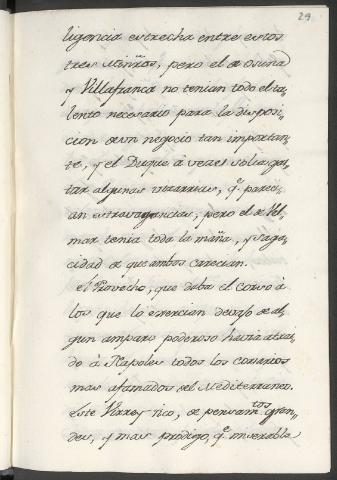 29
ligencia estrecha entre estos
tres Minros, pero el de osuna
y Villafranca no tenian todo el ta-
lento necesario para la disposi-
cion de un negocio tan importan-
te, y el Duque á veces solia gas-
tar algunas vizarrias, q.e pareci-
an extravagancias, pero el de Vel-
mar tenia toda la maña, y saga-
cidad de que ambos carecian.
el Provecho, que daba el corso á
los que lo exercian devajo de al-
gun amparo poderoso havia atrai-
do á Napoles todos los corsarios
mas afamados del Mediterraneo.
este Virrey rico, de pensam.tos gran-
des, y mas prodigo, q.e miserable